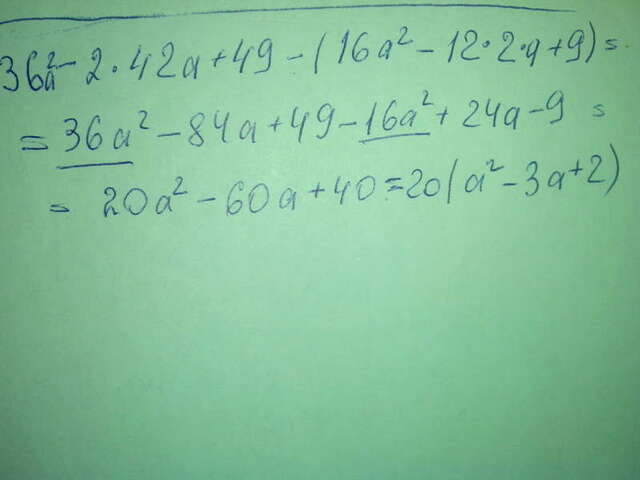 36a² - 2·42a + 49 - (16a² - 12·2·a + 9) =
= 36a² - 84a + 49 - 16a² + 24a - 9 =
= 20a² - 60a + 40 = 20(a² - 3a + 2)